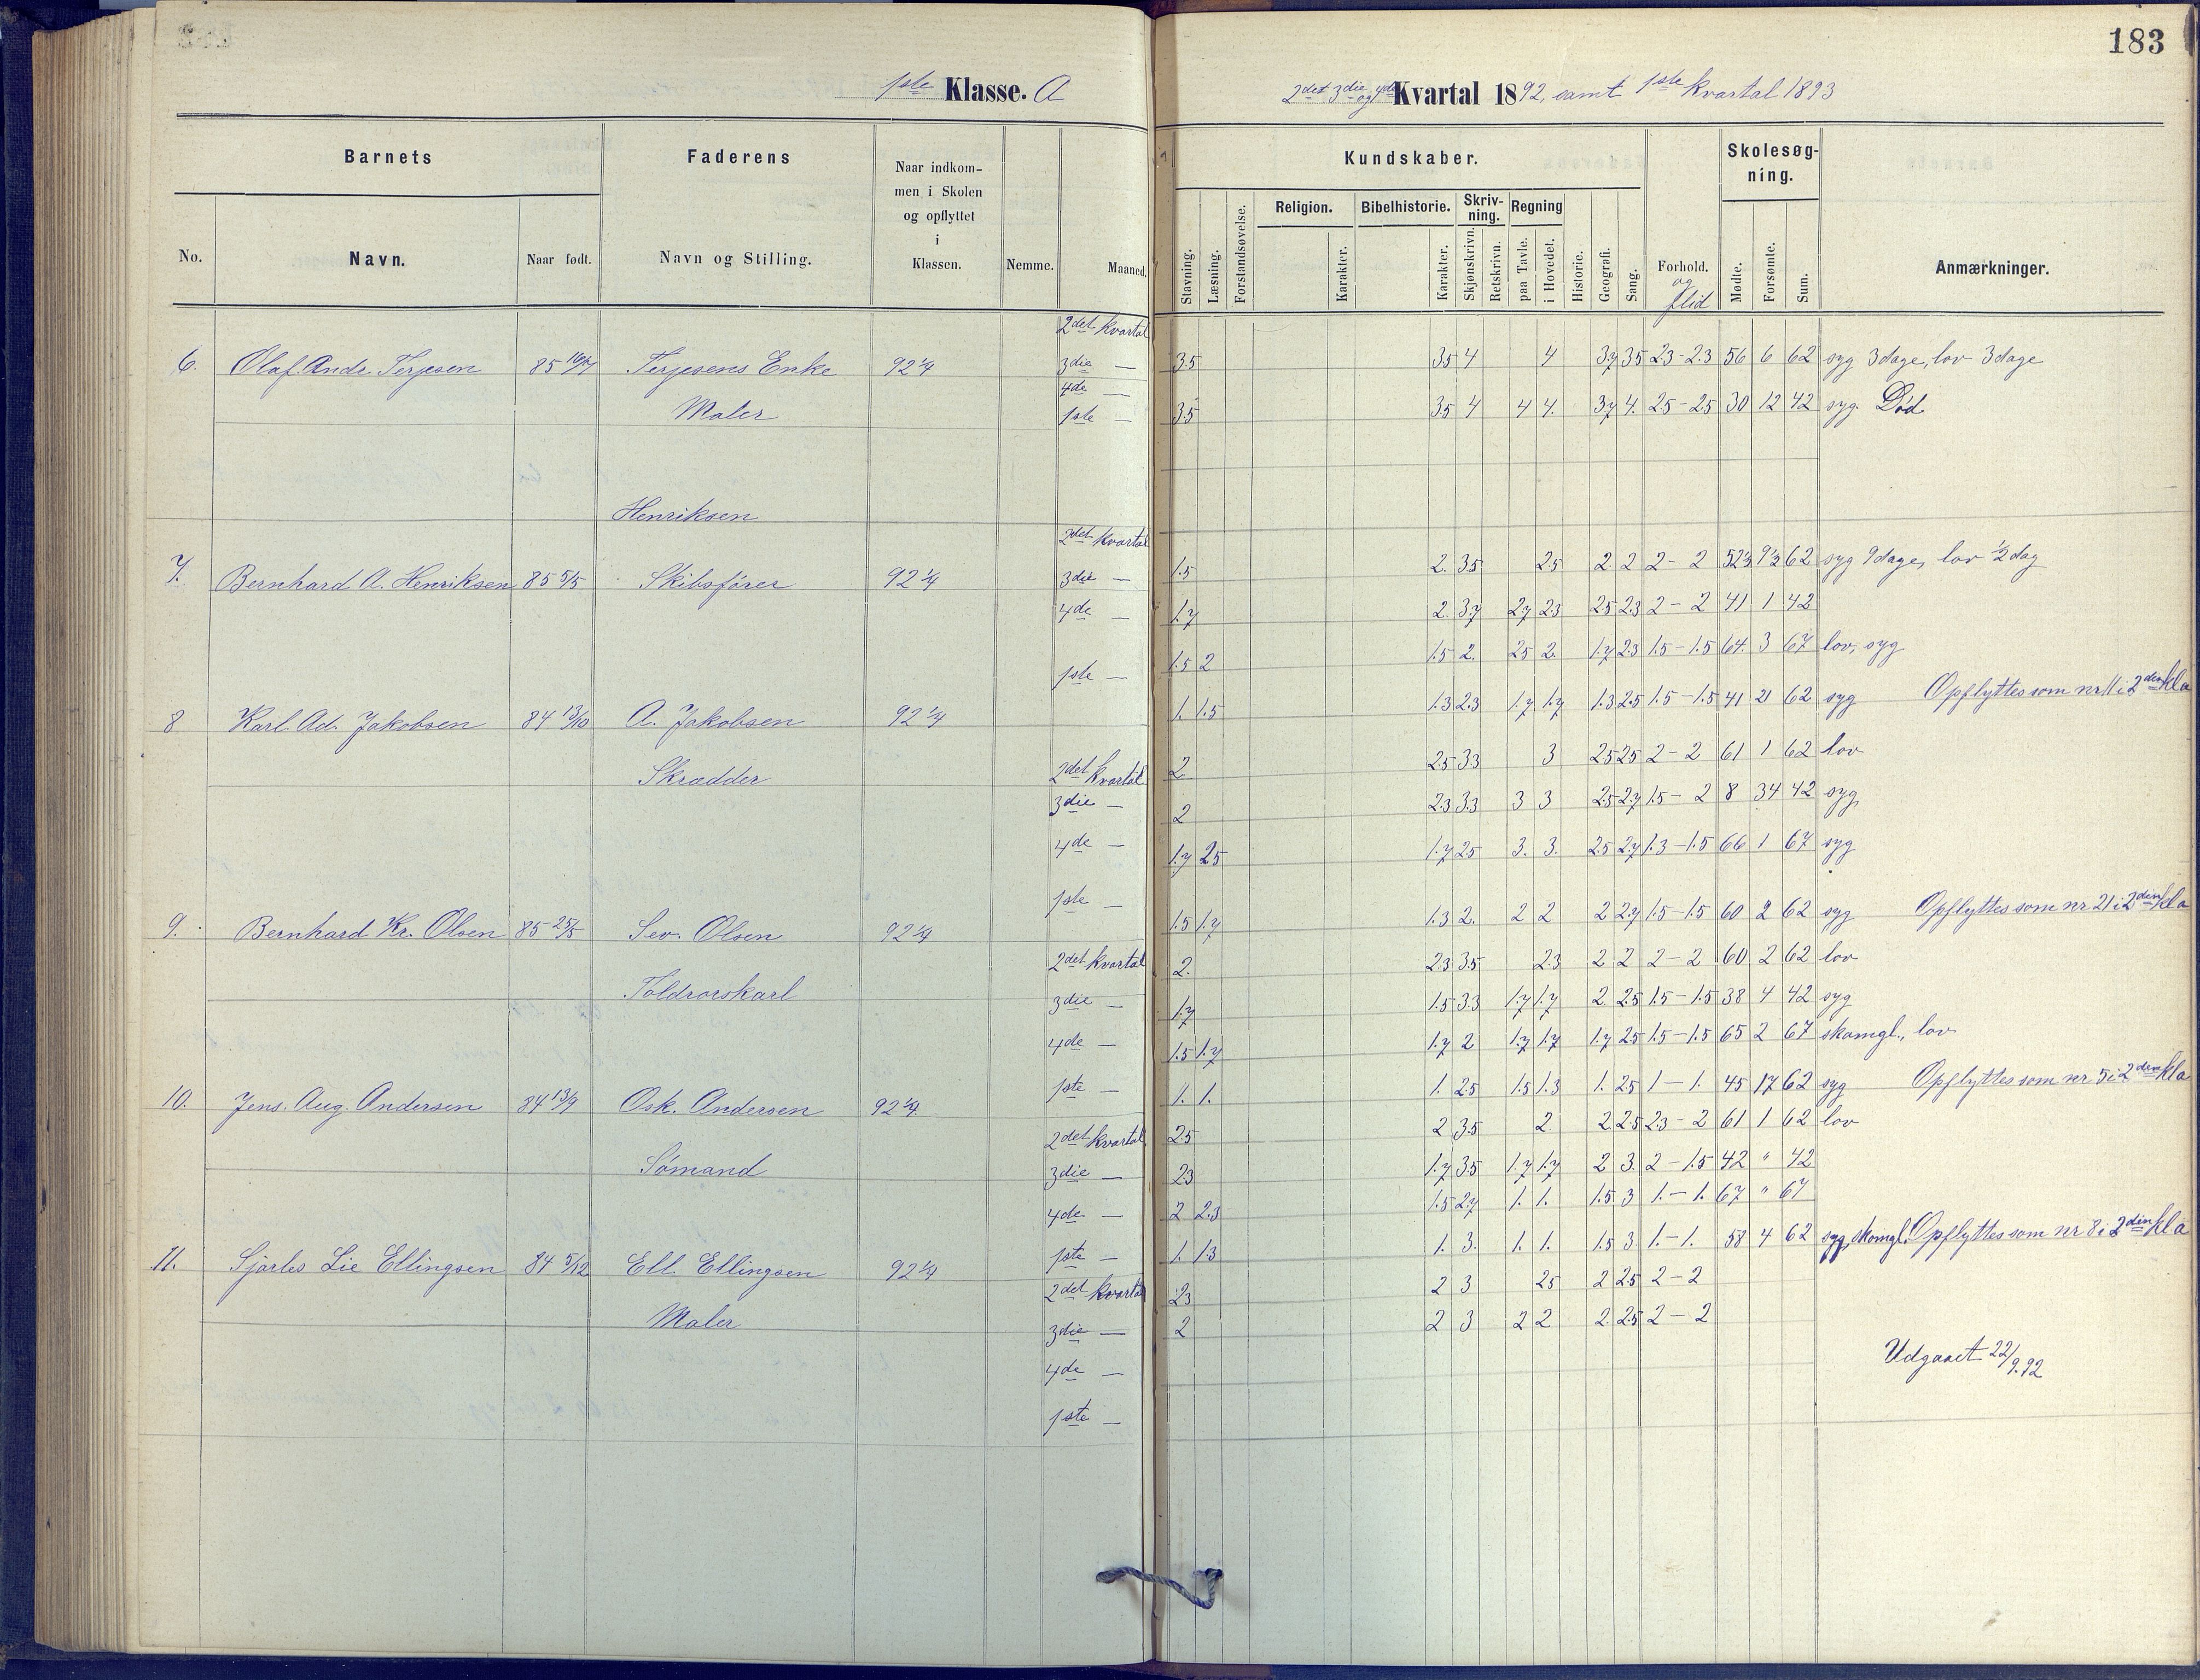 183
1ste Klasse. A
2det 3die og 4de Kvartal 1892, samt 1ste kvartal 1893
Barnets
Faderens
Naar indkom-
men i Skolen
og opflyttet
i
Klassen.
Kundskaber.
Skolesøg-
ning.
Religion. Bibelhistorie. Skriv-
ning. Regning
No. Navn. Naar født. Navn og Stilling. Nemme. Maaned.
Stavning. Læsning. Forstandsøvelse. Karakter. Karakter. Skjønskrivn. Retskrivn. paa Tavle. i Hovedet. Historie. Geografi. Sang. Forhold. og flid Mødte. Forsømte. Sum. Anmærkninger.
2det kvartal
6. Olaf. Andr. Terjesen 85 Terjesens Enke 92 1/4 3die — 3.5 3.5 4 4 3.7 3.5 2.3 - 2.3 56 6 62 syg 3 dage, lov 3 dage
4de —
Maler 1ste — 3.5 3.5 4 4 4. 3.7 4. 2.5 - 2.5 30 12 42 syg. Död.
Henriksen
2det kvartal
7. Bernhard A. Henriksen 85 5/5 Skibsfører 92 1/4 3die — 1.5 2. 3.5 2.5 2. 2 2 - 2 52 1/2 9 1/2 62 syg 9 dage, lov 1/2 dag
4de — 1.7 2. 3.7 2.7 2.3 2.5 2.3 2 - 2 41 1 42
1.5 2 1.5 2. 2.5 2. 1.7 2.3 1.5 - 1.5 64. 3 67 lov, syg
1ste — 1. 1.5 1.3 2.3 1.7 1.7 1.3 2.5 1.5 - 1.5 41 21 62 syg Opflyttes som nr 11 i 2den kl a
8 Karl. Ad. Jakobsen 84 13/10 A. Jakobsen 92 1/4
Skrædder 2det kvartal 2 2.5 3.3 3 2.5 2.5 2 - 2 61 1 62 lov
3die — 2 2.3 3.3 3 3 2.5 2.7 1.5 - 2 8 34 42 syg,
4de — 1.7 2.5 1.7 2.5 3. 3. 2.5 2.7 1.3 - 1.5 66 1 67 syg
1ste — 1.5 1.7 1.3 2. 2 2 2 2.7 1.5 - 1.5 60 2 62 syg Opflyttes som nr 21 i 2den kl a
9. Bernhard Kr. Olsen 85 25/5 Sev. Olsen 92 1/4
2det kvartal 2. 2.3 3.5 2.3 2 2 2 - 2 60 2 62 lov
Toldrorskarl 3die — 1.7 1.5 3.3 1.7 1.7 2. 2.5 1.5 - 1.5 38 4 42 syg
4de — 1.5 1.7 1.7 2 1.7 1.7 1.7 2.5 1.5 - 1.5 65 2 67 skomgl., lov
1ste — 1. 1. 1. 2.5 1.5 1.3 1. 2.5 1 - 1. 45 17 62 syg Opflyttes som nr. 5 i 2den kl a
10. Jens. Aug. Andersen 84 13/9 Osk. Andersen 92 1/4
2det kvartal 2.5 2 3.5 2 2. 2.5 2.3 - 2 61 1 62 lov
Sömand 3die — 2.3 1.7 3.5 1.7 1.7 2 3. 2 - 1.5 42 " 42
4de — 2 2.3 1.5 2.7 1. 1. 1.5 3 1. - 1. 67 " 67
1ste — 1. 1.3 1. 3. 1. 1. 1.5 3 1. - 1. 58 4 62 syg, skomgl. Opflyttes som nr 8 i 2den kl a
11. Sjarles Lie Ellingsen 84 5/12 Ell. Ellingsen 92 1/4
2det kvartal 2.3 2 3 2.5 2 2.5 2 - 2
Maler 3die — 2 2 3 2 2 2. 2.5 2 - 2
4de — Udgaaet 22/9.92
1ste —